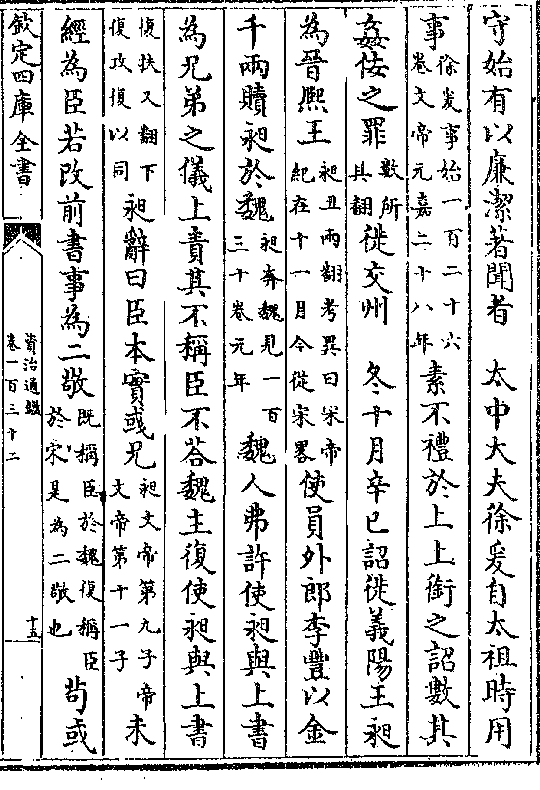 守始有以廉潔著聞者　太中大夫徐爰自太祖時用
事徐爰事始一百二十六卷文帝元嘉二十八年素不禮於上上銜之詔數其
姦佞之罪數所具翻徙交州　冬十月辛巳詔徙義陽王昶
為晉熙王昶丑兩翻考異曰宋帝紀在十一月今從宋畧使員外郎李豐以金
千兩贖昶於魏昶奔魏見一百三十卷元年魏人弗許使昶與上書
為兄弟之儀上責其不稱臣不荅魏主復使昶與上書
復扶又翻下復攻復以同昶辭曰臣本實彧兄昶文帝第九子帝文帝第十一子未
經為臣若改前書事為二敬既稱臣於魏復稱臣於宋是為二敬也苟或
欽定四庫全書
資治通鑑
卷一百三十二
十五